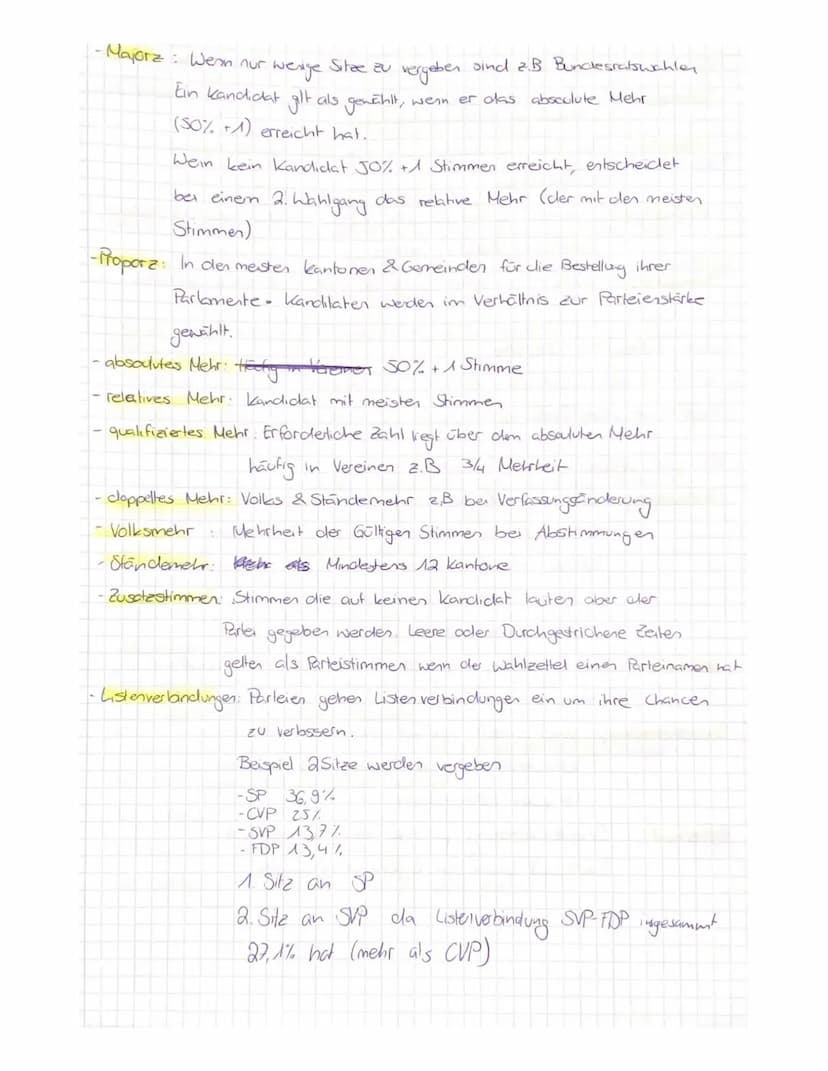 - Majorz : Wenn nur wenige Sitze zu vergeben sind z.B Bundesratswahlen
Ein Kandidat gilt als gewählt, wenn er das absolute Mehr
(50% +1) erreicht hat.
Wenn kein Kandidat 50% +1 Stimmen erreicht, entscheidet
bei einem 2. Wahlgang das relative Mehr (der mit den meisten
Stimmen)
- Proporz: In den meisten Kantonen & Gemeinden für die Bestellung ihrer
Parlamente. Kandidaten werden im Verhältnis zur Parteienstärke
gewählt.
- absolutes Mehr: Häufig in Vereinen 50% + 1 Stimme
- relatives Mehr: Kandidat mit meisten Stimmen
- qualifiziertes Mehr: Erforderliche Zahl liegt über dem absoluten Mehr
häufig in Vereinen z.B 3/4 Mehrheit
- doppeltes Mehr: Volks & Ständemehr z.B bei Verfassungsänderung
- Volksmehr : Mehrheit der Gültigen Stimmen bei Abstimmungen
- Ständemehr: Mehr als Mindestens 12 Kantone
- Zusatzstimmen: Stimmen die auf keinen Kandidat lauten aber der
Partei gegeben werden. Leere oder Durchgestrichene Zeilen
gelten als Parteistimmen wenn der Wahlzettel einen Parteinamen hat
- Listenverbindungen: Parteien gehen Listenverbindungen ein um ihre Chancen
zu verbssern.
Beispiel 2 Sitze werden vergeben
- SP 36,9%
- CVP 25%
- SVP 13,7%
- FDP 13,4%
1. Sitz an SP
2. Sitz an SVP da Listenverbindung SVP-FDP ingesammt
27,1% hat (mehr als CVP)